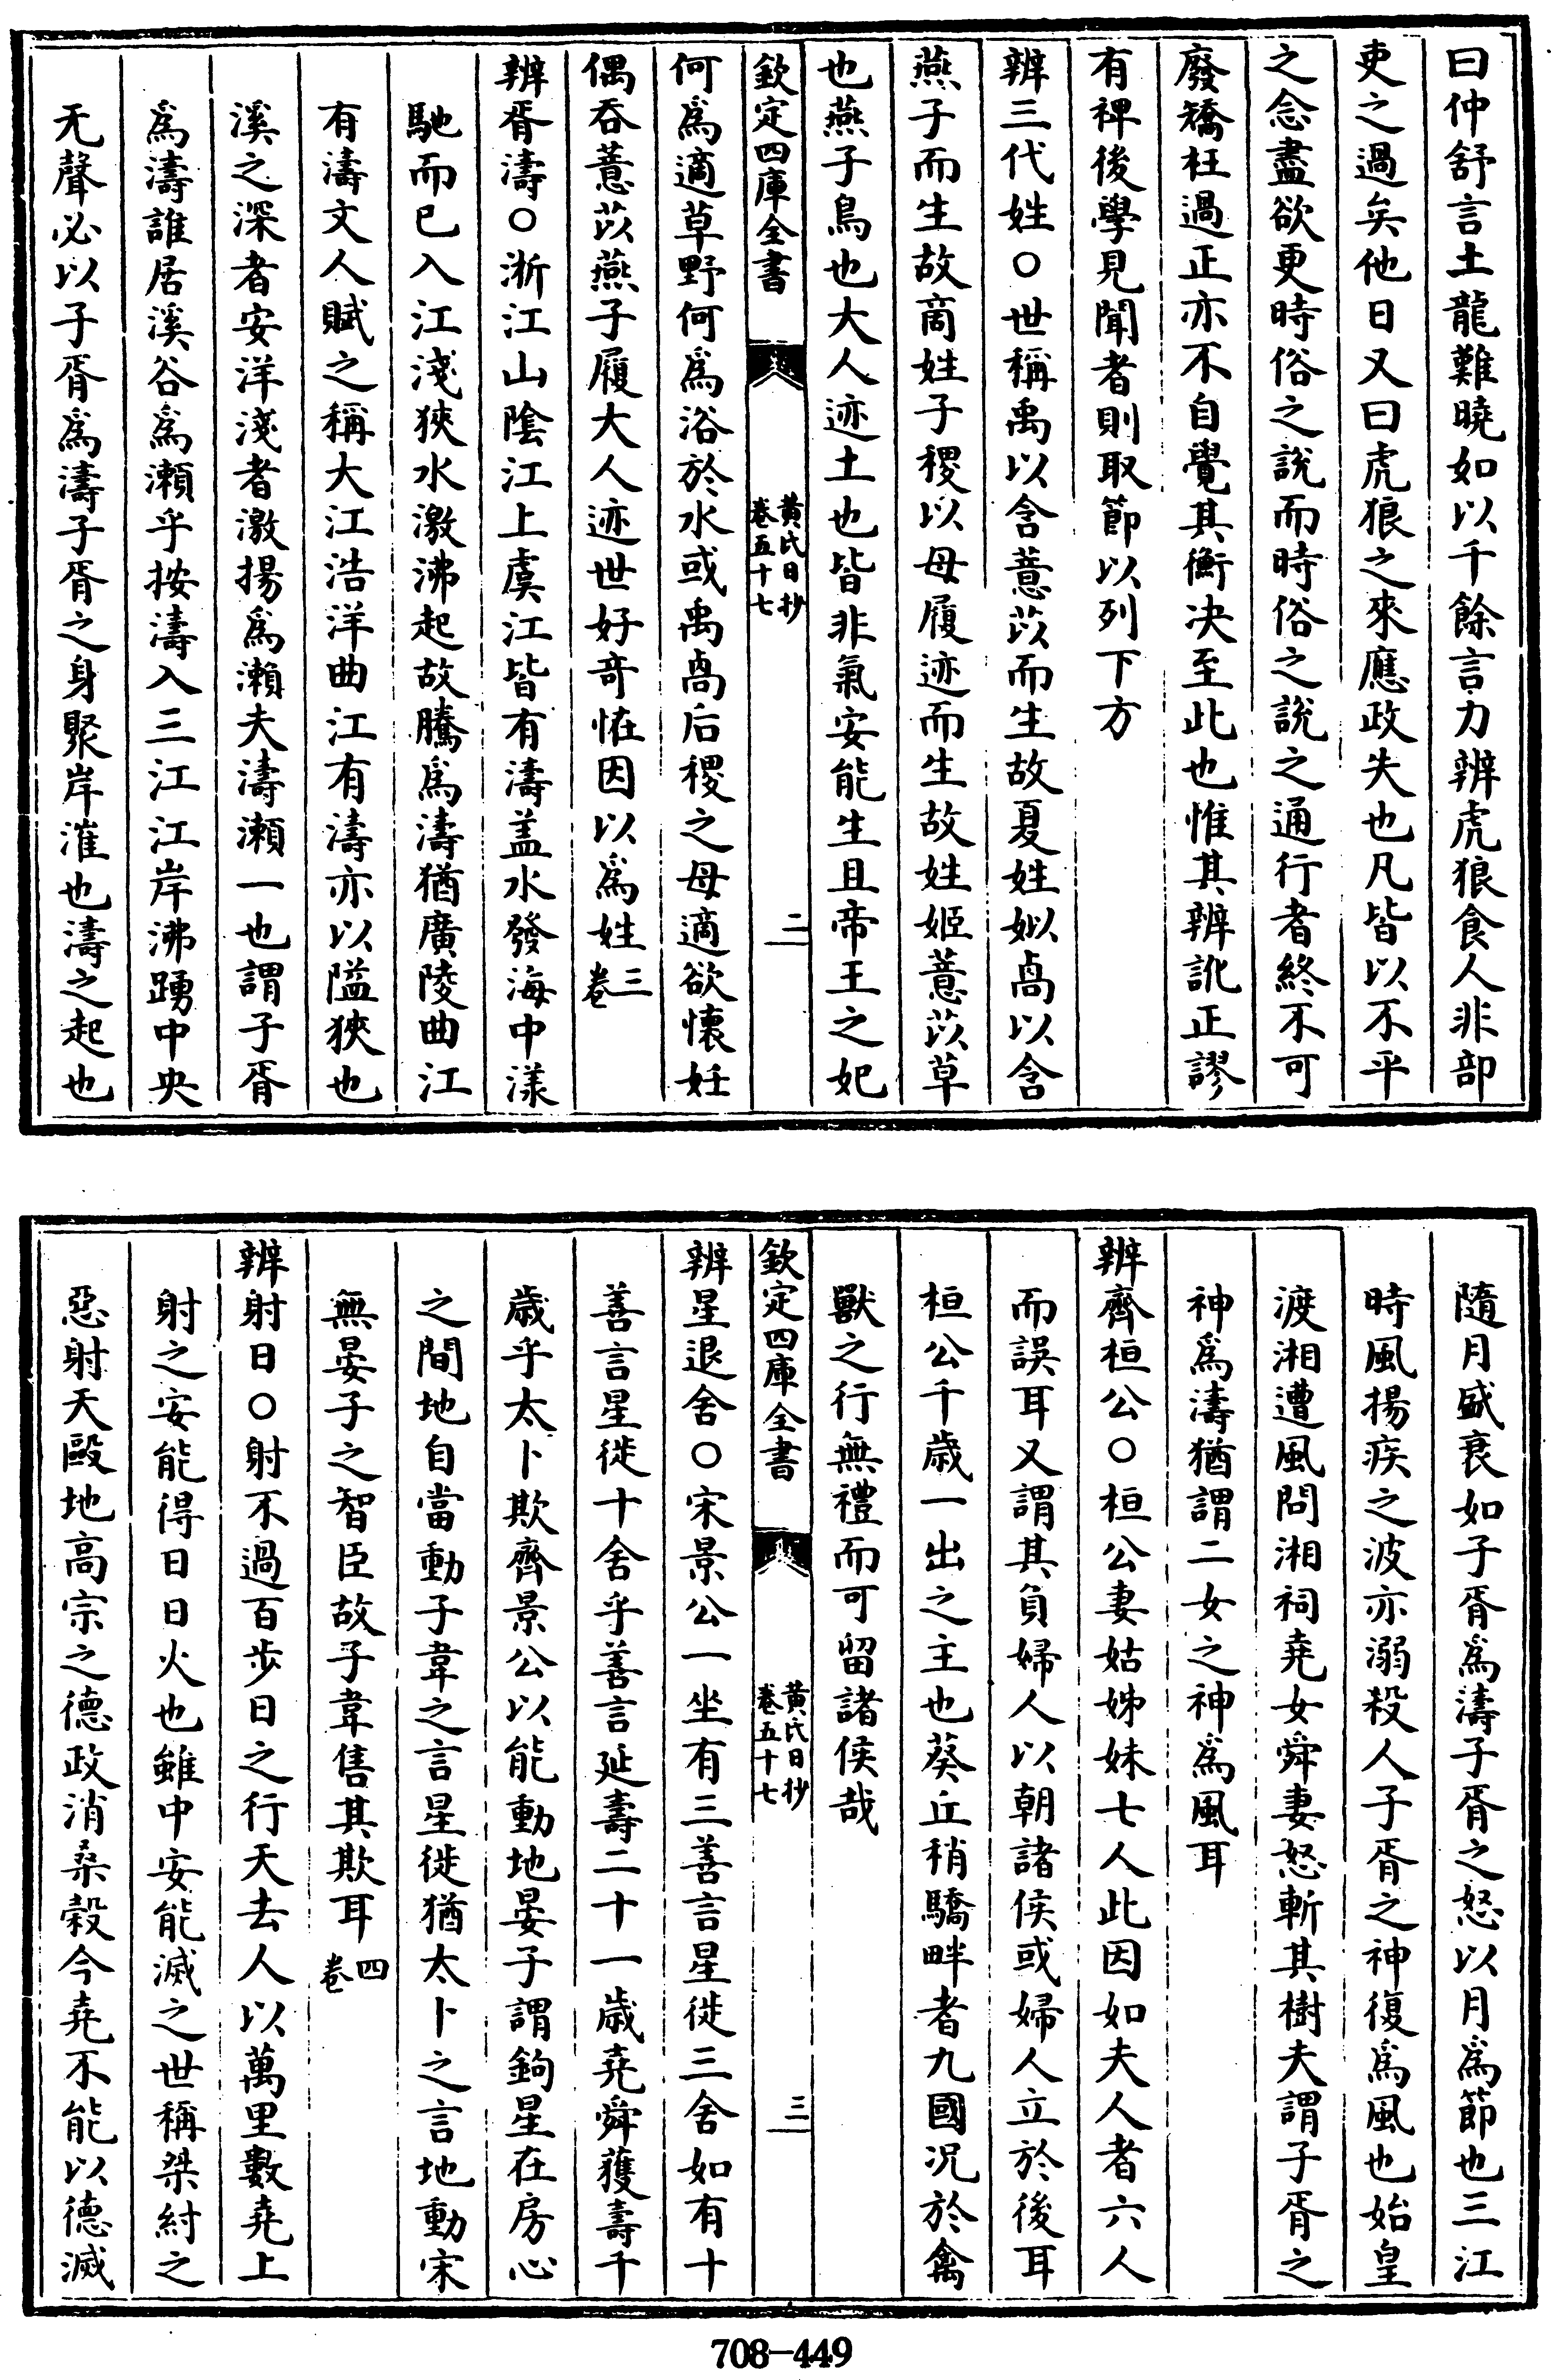 曰仲舒言土龍難曉如以千餘言力辨虎狼食人非部
吏之過矣他日又曰虎狼之來應政失也凡皆以不平
之念盡欲更時俗之說而時俗之說之通行者終不可
廢矯枉過正亦不自覺其衡决至此也惟其辨訛正謬
有裨後學見聞者則取節以列下方
辨三代姓○世稱禹以含薏苡而生故夏姓姒卨以含
燕子而生故商姓子稷以母履迹而生故姓姬薏苡草
也燕子鳥也大人迹土也皆非氣安能生且帝王之妃
欽定四庫全書
黄氏日抄
卷五十七
二
何為適草野何為浴於水或禹卨后稷之母適欲懷妊
偶吞薏苡燕子履大人迹世好竒怪因以為姓三卷
辨胥濤○浙江山陰江上虞江皆有濤盖水發海中漾
馳而已入江淺狹水激沸起故騰為濤猶廣陵曲江
有濤文人賦之稱大江浩洋曲江有濤亦以隘狹也
溪之深者安洋淺者激揚為瀨夫濤瀨一也謂子胥
為濤誰居溪谷為瀨乎按濤入三江江岸沸踴中央
无聲必以子胥為濤子胥之身聚岸漼也濤之起也
隨月盛衰如子胥為濤子胥之怒以月為節也三江
時風揚疾之波亦溺殺人子胥之神復為風也始皇
渡湘遭風問湘祠堯女舜妻怒斬其樹夫謂子胥之
神為濤猶謂二女之神為風耳
辨齊桓公○桓公妻姑姊妹七人此因如夫人者六人
而誤耳又謂其負婦人以朝諸侯或婦人立於後耳
桓公千歲一出之主也葵丘稍驕畔者九國况於禽
獸之行無禮而可留諸侯哉
欽定四庫全書
黄氏日抄
卷五十七
三
辨星退舍○宋景公一坐有三善言星徙三舍如有十
善言星徙十舍乎善言延壽二十一歲堯舜獲壽千
歲乎太卜欺齊景公以能動地晏子謂鉤星在房心
之間地自當動子韋之言星徙猶太卜之言地動宋
無晏子之智臣故子韋售其欺耳四卷
辨射日○射不過百步日之行天去人以萬里數堯上
射之安能得日日火也雖中安能滅之世稱桀紂之
惡射天毆地高宗之德政消桑榖今堯不能以德滅
708-449